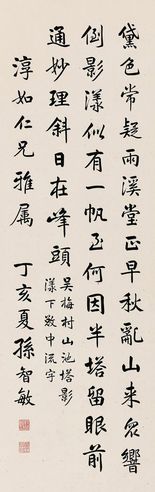 黛色常疑雨溪堂正早秋亂山来眾響
倒影漾似有一帆至何因半塔留眼前
通妙理斜日在峰頭
吳梅村山池塔影
漾下敚中流字
淳如仁兄雅属
丁亥夏孫智敏